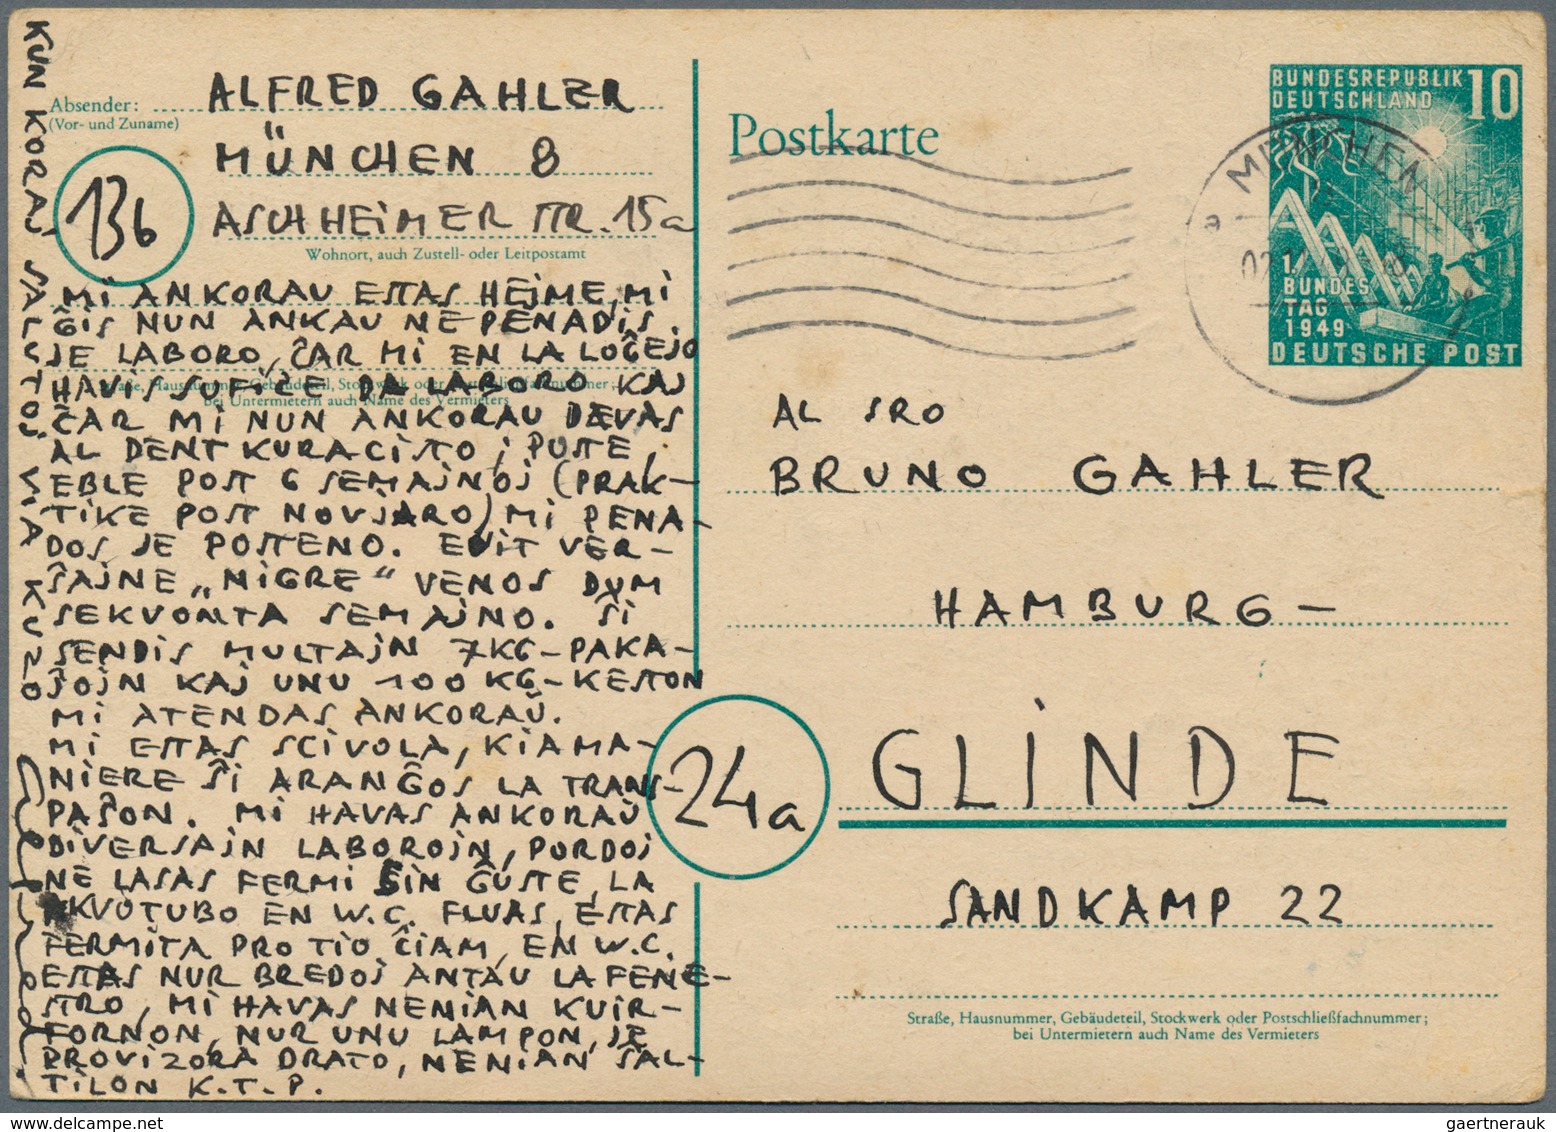 Absender:
(Vor- und Zuname)
ALFRED GAHLER
MÜNCHEN 8
13b
ASCHHEIMER STR. 15a
Wohnort, auch Zustell- oder Leitpostamt
MI ANKORAU ESTAS HEJME, MI
ĜIS NUN ANKAU NE PENADIS
JE LABORO, ĈAR MI EN LA LOĜEJO
HAVIS SOFIĈE DA LABORO KAJ
Straße, Hausnummer, Gebäudeteil, Stockwerk oder Postschließfachnummer;
bei Untermietern auch Name des Vermieters
ĈAR MI NUN ANKORAU DEVAS
AL DENTKURACISTO; POSTE,
EBLE POST 6 SEMAJNOJ (PRAK-
TIKE POST NOVJARO) MI PENA-
DOS JE POSTENO. EDIT VER-
ŜAJNE „NIGRE“ VENOS DUM
SEKVONTA SEMAJNO. ŜI
SENDIS MULTAJN 7KG-PAKA-
ĴOJN KAJ UNU 100KG-KESTON
MI ATENDAS ANKORAŬ.
MI ESTAS SCIVOLA, KIAMA-
NIERE ŜI ARANĜOS LA TRANS-
PAŜON. MI HAVAS ANKORAŬ
DIVERSAJN LABOROJN, PORDOJ
NE LASAS FERMI SIN ĜUSTE, LA
AKVOTUBO EN W.C. FLUAS, ESTAS
FERMITA PRO TIO ĈIAM, EN W.C.
ESTAS NUR BREDOJ ANTAU LA FENE-
STRO, MI HAVAS NENIAN KUIR-
FORNON, NUR UNU LAMPON, JE
PROVIZORA DRATO, NENIAN ŜAL-
TILON K.T.P.
KUN KORAJ SALUTOJ VIA KUZO
Postkarte
BUNDESREPUBLIK
DEUTSCHLAND
10
1.
BUNDES
TAG
1949
DEUTSCHE POST
MUENCHEN
AL SRO
BRUNO GAHLER
HAMBURG-
24a
GLINDE
SANDKAMP 22
Straße, Hausnummer, Gebäudeteil, Stockwerk oder Postschließfachnummer;
bei Untermietern auch Name des Vermieters
gaertnerauk @ delcampe.net